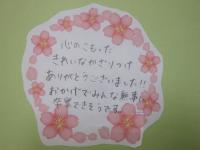 心のこもった
きれいなかざりつけ
ありがとうございました!!
おかげでみんな無事に
卒業できそうです。